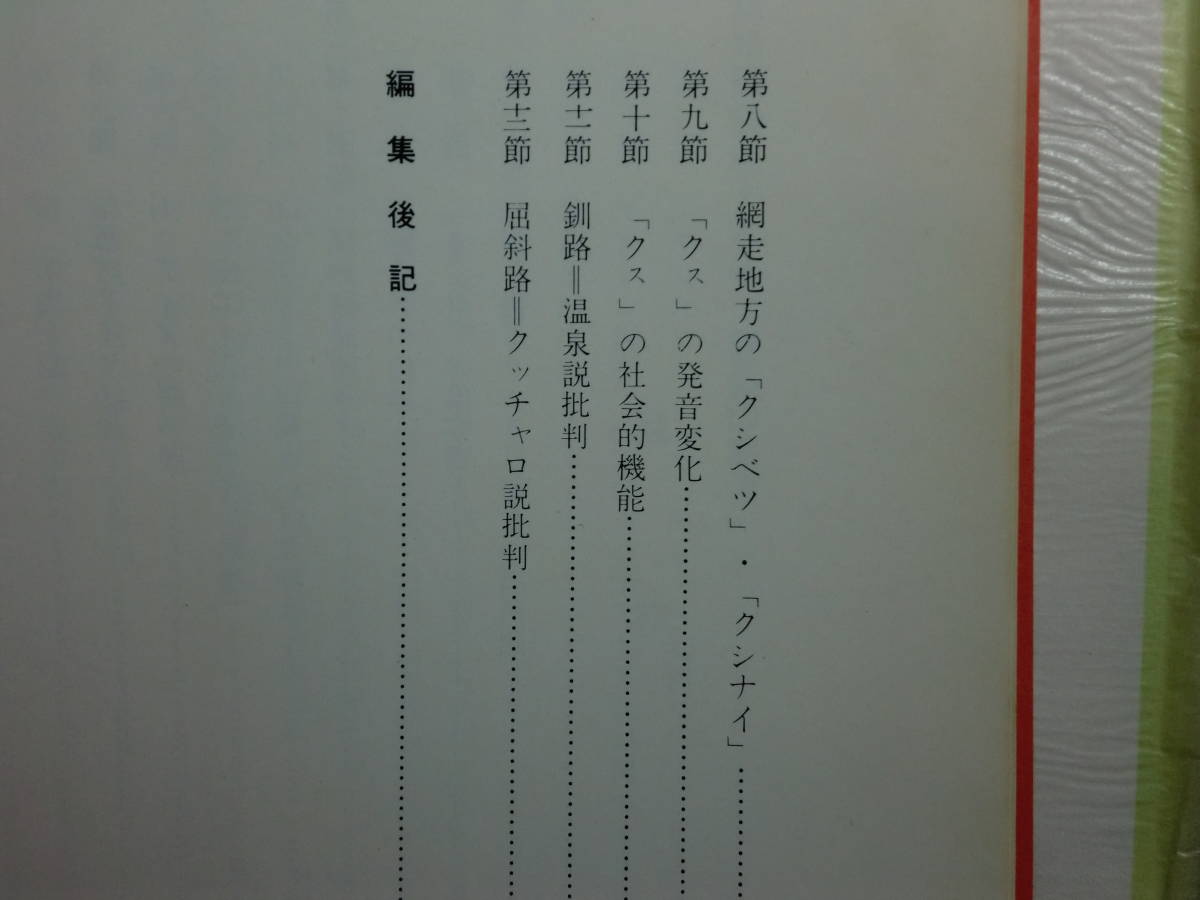 第八節　網走地方の「クシベツ」・「クシナイ」…………
第九節　「クㇲ」の発音変化…………
第十節　「クㇲ」の社会的機能…………
第十一節　釧路＝温泉説批判…………
第十二節　屈斜路＝クッチャロ説批判…………
編集後記…………